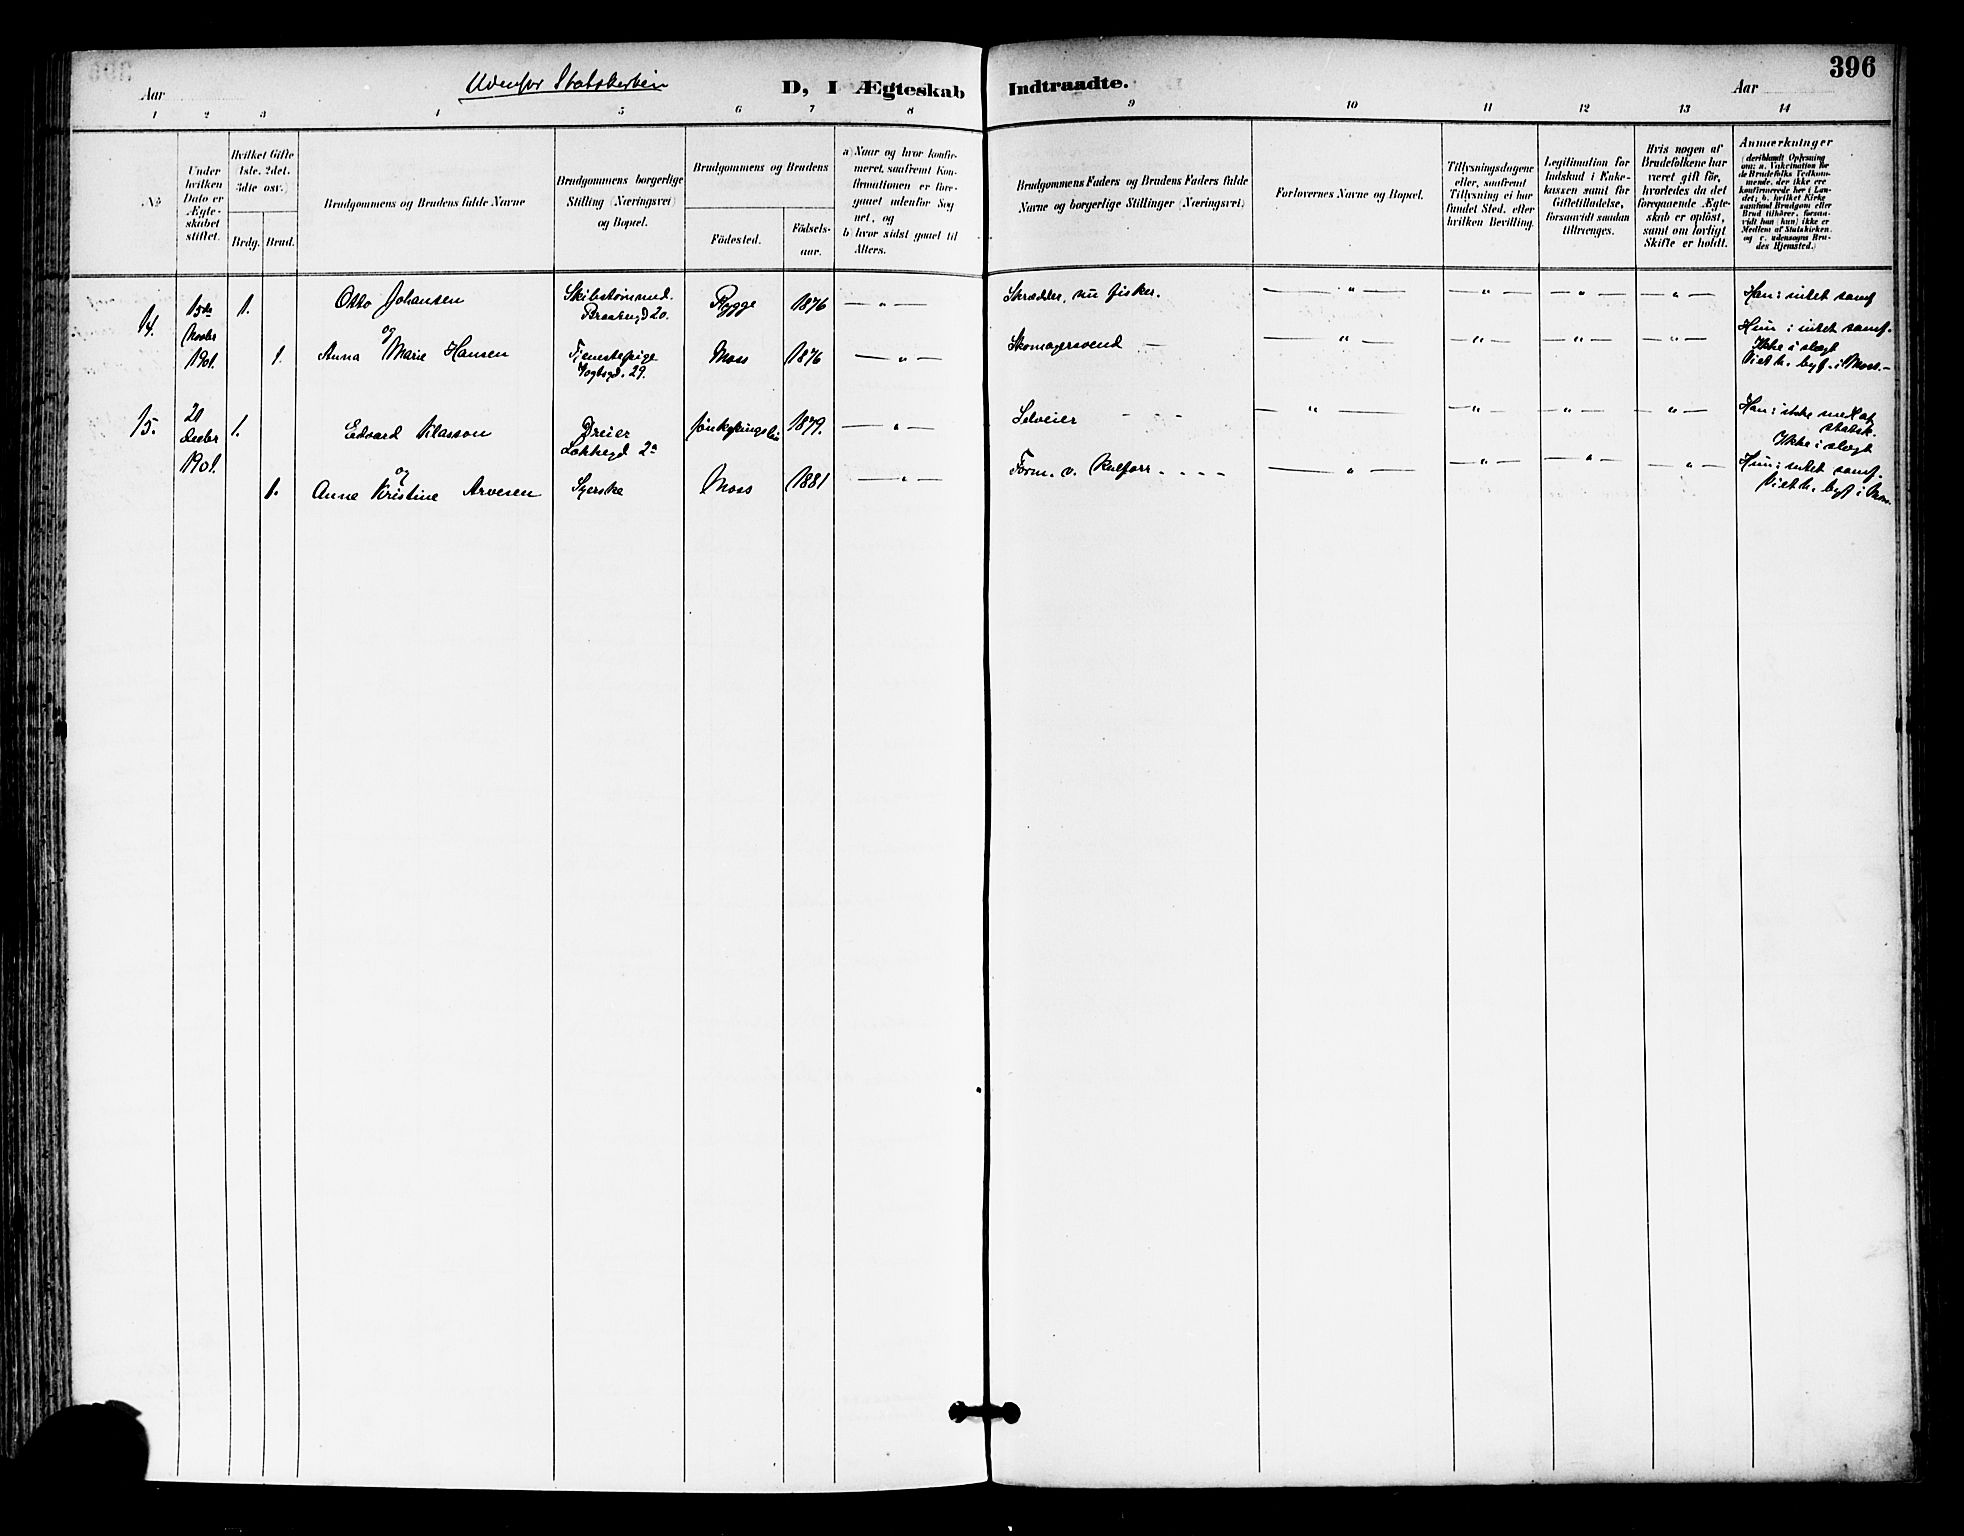 396
Udenfor Statskirken
Aar
D, I Ægteskab Indtraadte.
Aar
1 2 3 4 5 6 7 8 9 10 11 12 13 14
No.
Under hvilken Dato er Ægteskabet stiftet.
Hvilket Gifte (1ste. 2det. 3dte osv.)
Brdg. Brud.
Brudgommens og Brudens fulde Navne
Brudgommens borgerlige Stilling (Næringsvei) og Bopæl.
Brudgommens og Brudens
Födested.
Födselsaar.
a) Naar og hvor konfirmeret, saafremt Konfirmationen er foregaaet udenfor Sognet, og
b) hvor sidst gaaet til Alters.
Brudgommens Faders og Brudens Faders fulde Navne og borgerlige Stillinger (Næringsvei)
Forlovernes Navne og Bopæl.
Tillysningsdagene eller, saafremt Tillysning ei har fundet Sted, efter hvilken Bevilling.
Legitimation for Indskud i Enkekassen samt for Giftetilladelse, forsaavidt saadan tiltrænges.
Hvis nogen af Brudefolkene har været gift før, hvorledes da det foregaaende Ægteskab er opløst, samt om lovligt Skifte er holdt.
Anmærkninger
(deriblandt Oplysning om: a. Vakcination for de Brudefolks Vedkommende, der ikke ere konfirmerede her i Landet; b. hvilket Kirkesamfund Brudgom eller Brud tilhører, forsaavidt han (hun) ikke er Medlem af Statskirken, og c. udensogns Brudes Hjemsted.)
14. 15de Novbr 1901. 1. Otto Johansen Skibstømmmd. 20. Rygge 1876 — " — Skrædder, nu fisker. — " — — " — — " — — " — Han: intet samf
og
1. Anna Marie Hansen Tjenestepige Vogtsgd. 29. Moss 1876 — " — Skomagersvend — — " — — " — — " — — " — Hun: intet samf.
Ikke i slægt
Viet h. byf. i Moss. —
15. 20 Decbr 1901. 1. Edvard Klasson Dreier Løkkegd 2a 1879. — " — Selveier - - - — " — — " — — " — — " — Han: ikke medl af statsk.
Ikke i slægt
og
1. Anne Kristine Arvesen Syerske Moss 1881 — " — Form. v. - - - - — " — — " — — " — — " — Hun: intet samf.
Viet h. byf i Moss.